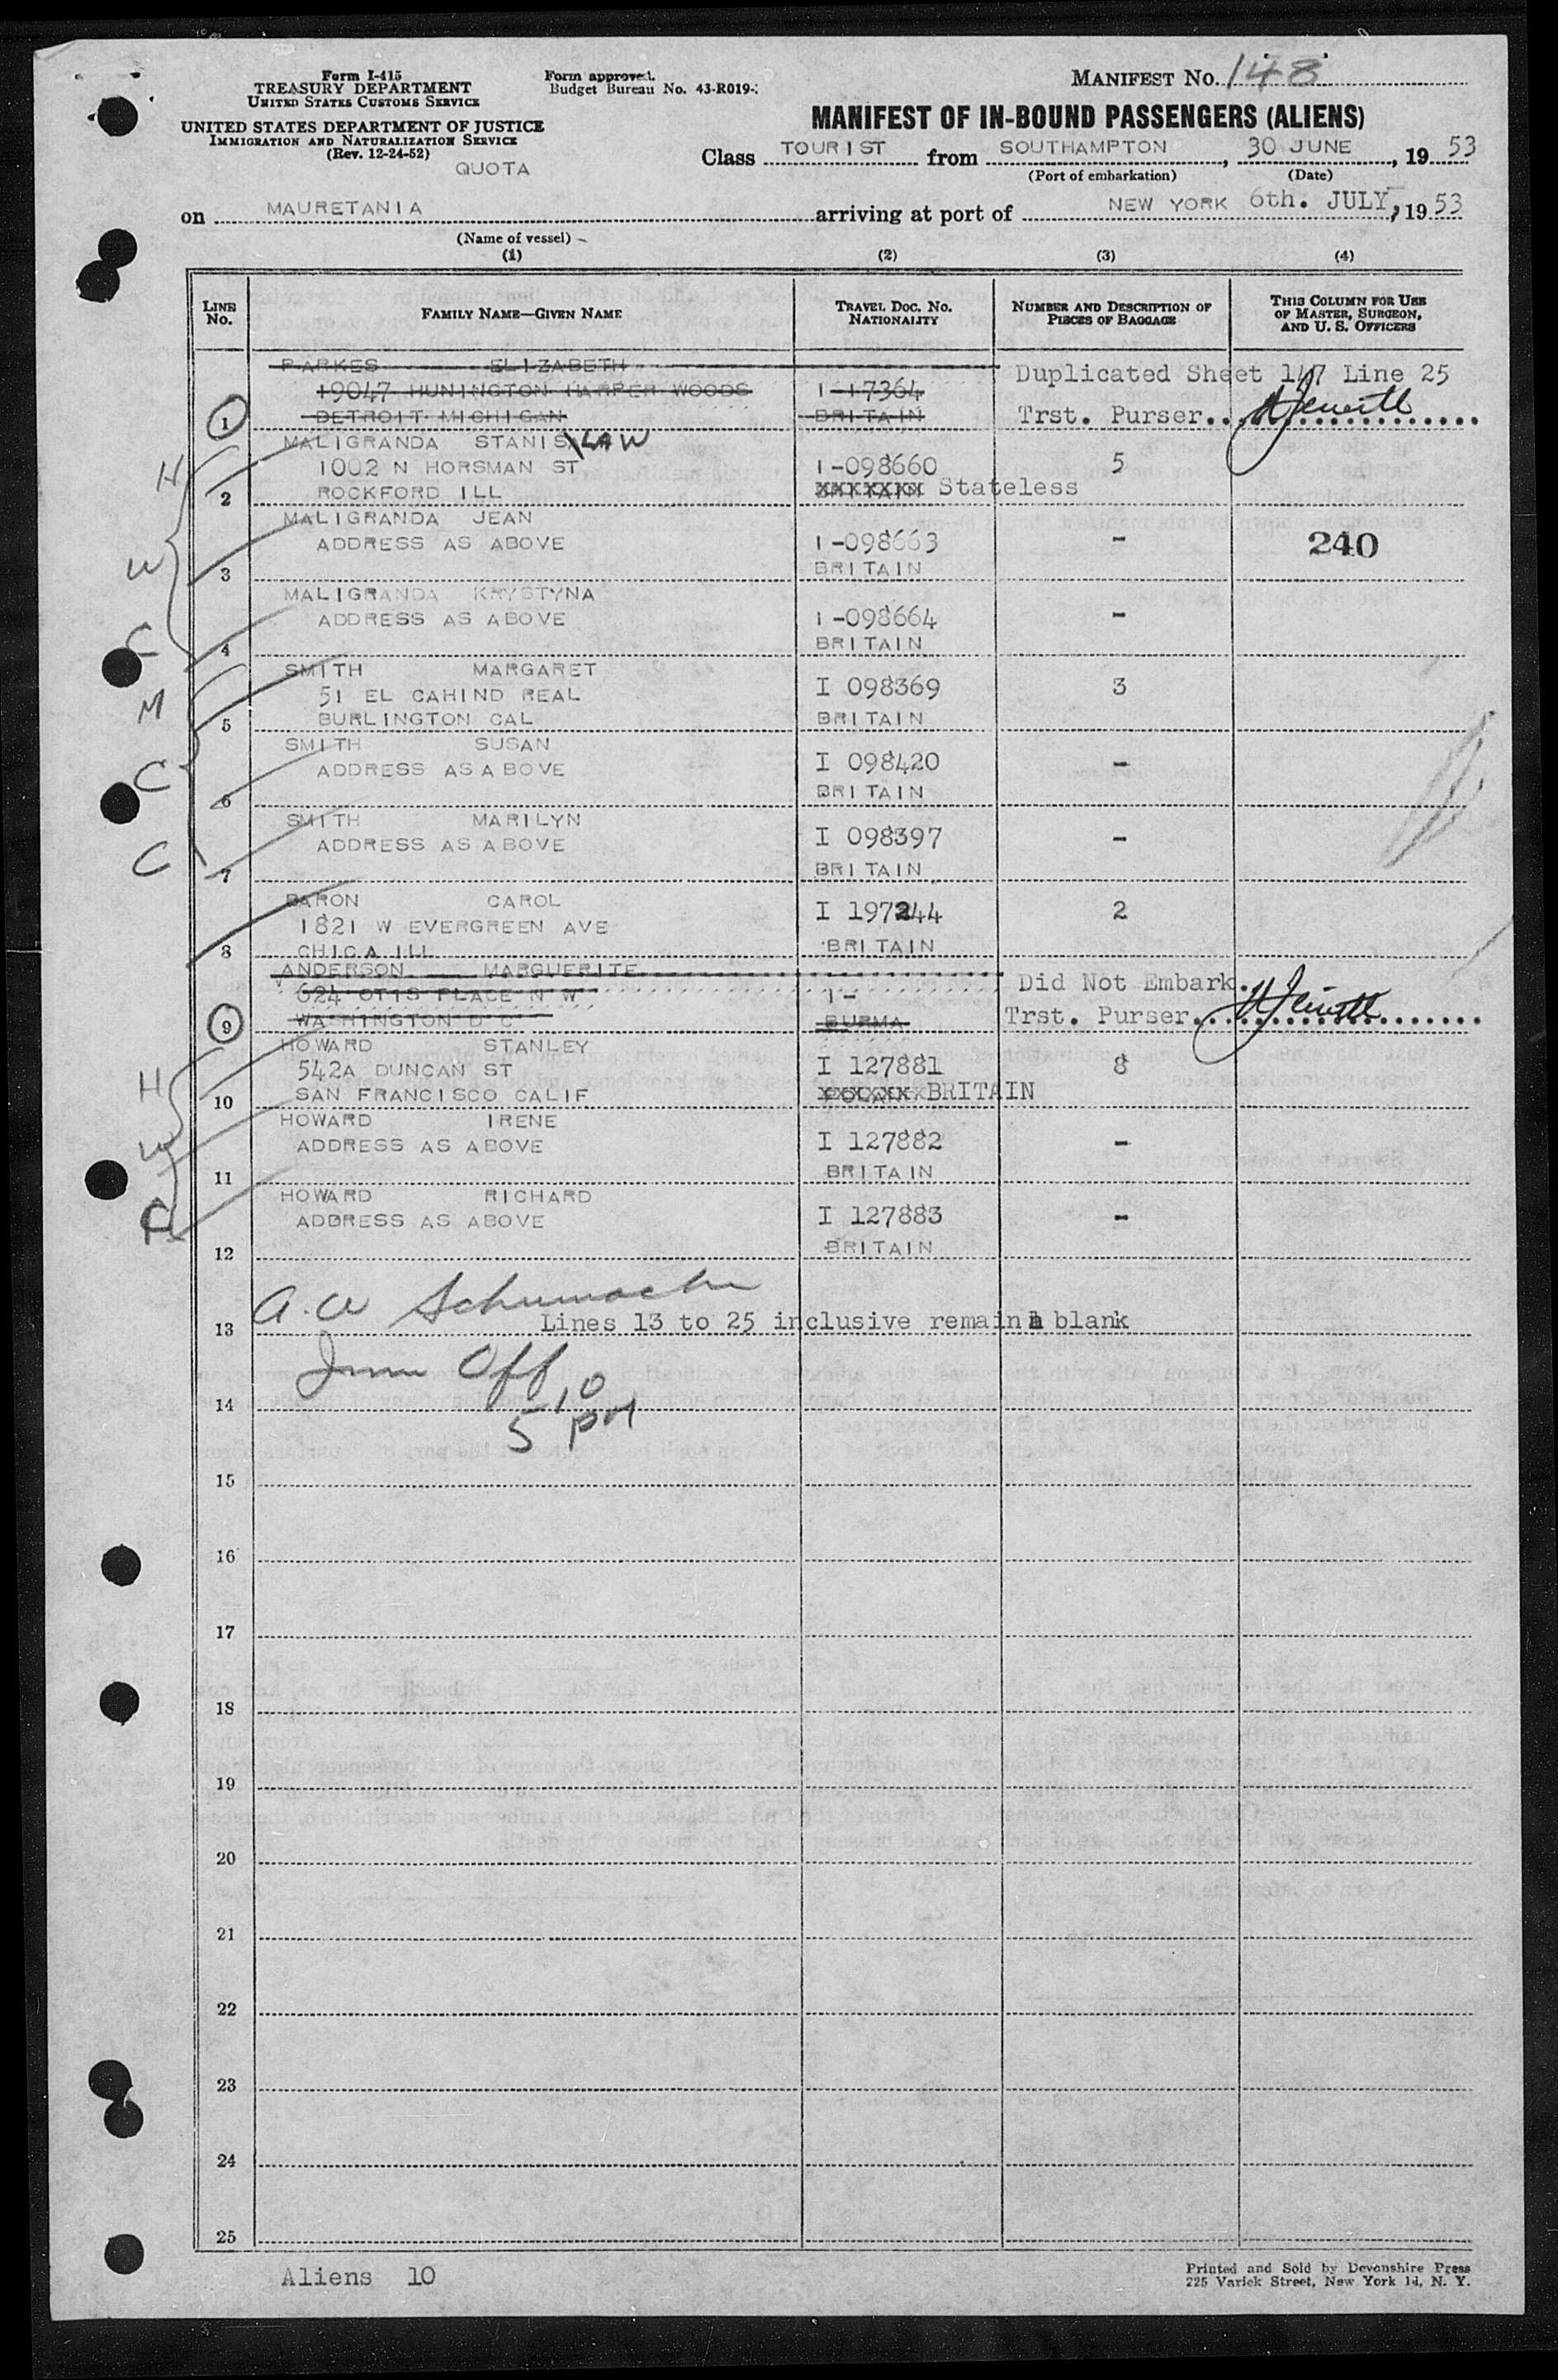 Form I-415
TREASURY DEPARTMENT
UNITED STATES CUSTOMS SERVICE
UNITED STATES DEPARTMENT OF JUSTICE
IMMIGRATION AND NATURALIZATION SERVICE
(Rev. 12-24-52)
QUOTA
Form approved.
Budget Bureau No. 43-R019-
MANIFEST NO. 148
MANIFEST OF IN-BOUND PASSENGERS (ALIENS)
Class TOURIST from SOUTHAMPTON, 30 JUNE, 1953
(Port of embarkation) (Date)
on MAURETANIA arriving at port of NEW YORK 6th. JULY, 1953
(Name of vessel)
(1) (2) (3) (4)
LINE NO. FAMILY NAME—GIVEN NAME TRAVEL DOC. NO. NATIONALITY NUMBER AND DESCRIPTION OF PIECES OF BAGGAGE THIS COLUMN FOR USE OF MASTER, SURGEON, AND U. S. OFFICERS
PARKES ELIZABETH Duplicated Sheet 147 Line 25
19047 HUNINGTON HARPER WOODS I-17364
1 DETROIT MICHIGAN BRITAIN Trst. Purser
MALIGRANDA STANISLAW
H 1002 N HORSMAN ST I-098660 5
2 ROCKFORD ILL XXXXXXX Stateless
MALIGRANDA JEAN
W ADDRESS AS ABOVE I-098663 - 240
3 BRITAIN
MALIGRANDA KRYSTYNA
C ADDRESS AS ABOVE I-098664 -
4 BRITAIN
SMITH MARGARET
M 51 EL CAHIND REAL I 098369 3
5 BURLINGTON CAL BRITAIN
SMITH SUSAN
C ADDRESS AS ABOVE I 098420 -
6 BRITAIN
SMITH MARILYN
C ADDRESS AS ABOVE I 098397 -
7 BRITAIN
BARON CAROL
1821 W EVERGREEN AVE I 197244 2
8 CHICA ILL BRITAIN
ANDERSON MARGUERITE Did Not Embark.
624 OTIS PLACE N W I-
9 WASHINGTON D C BURMA Trst. Purser
HOWARD STANLEY
H 542A DUNCAN ST I 127881 8
10 SAN FRANCISCO CALIF XXXXXX BRITAIN
HOWARD IRENE
W ADDRESS AS ABOVE I 127882 -
11 BRITAIN
HOWARD RICHARD
ADDRESS AS ABOVE I 127883 -
12 BRITAIN
A.W Schumacher
13 Lines 13 to 25 inclusive remain blank
Imm Off
14
5 10 PM
15
16
17
18
19
20
21
22
23
24
25
Aliens 10
Printed and Sold by Devonshire Press
225 Varick Street, New York 14, N. Y.